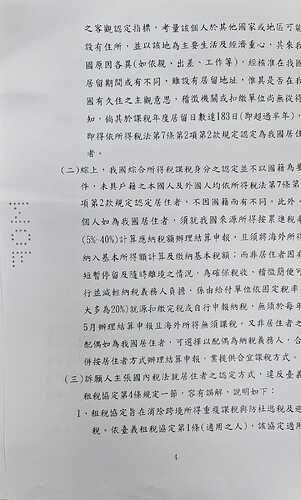 之客觀認定指標，考量該個人於其他國家或地區可能
設有住所，並以該地為主要生活及經濟重心，其來我
國原因各異(如依親、出差、工作等)，經核准在我國
居留期間或有不同，雖設有居留地址，惟其是否在我
國有久住之主觀意思，稽徵機關或扣繳單位尚無從得
知，倘其於課稅年度居留日數達183日(即超過半年)，
即得依所得稅法第7條第2項第2款規定認定為我國居住
者。
(二)綜上，我國綜合所得稅課稅身分之認定並不以國籍為要
件，未具戶籍之本國人及外國人均依所得稅法第7條第2
項第2款規定認定居住者，不因國籍而有不同，此外，
個人如為我國居住者，須就我國來源所得按累進稅率
(5%-40%)計算應納稅額辦理結算申報，且須將海外所得
納入基本所得額計算及繳納基本稅額；而非居住者因有
短暫停留及隨時離境之情況，為確保稅收、稽徵簡便可
行並減輕納稅義務人負擔，係由給付單位依固定稅率(
大多為20%)就源扣繳完稅或自行申報納稅，無須於每年
5月辦理結算申報且海外所得無須課稅，又非居住者之
配偶如為我國居住者，可選擇以配偶為納稅義務人，合
併按居住者方式辦理結算申報，業提供合宜課稅方式。
(三)訴願人主張國內稅法就居住者之認定方式，違反臺義
租稅協定第4條規定一節，容有誤解，說明如下：
1、租稅協定旨在消除跨境所得重複課稅與防杜逃稅及避
稅。依臺義租稅協定第1條(適用之人)，該協定適用
4